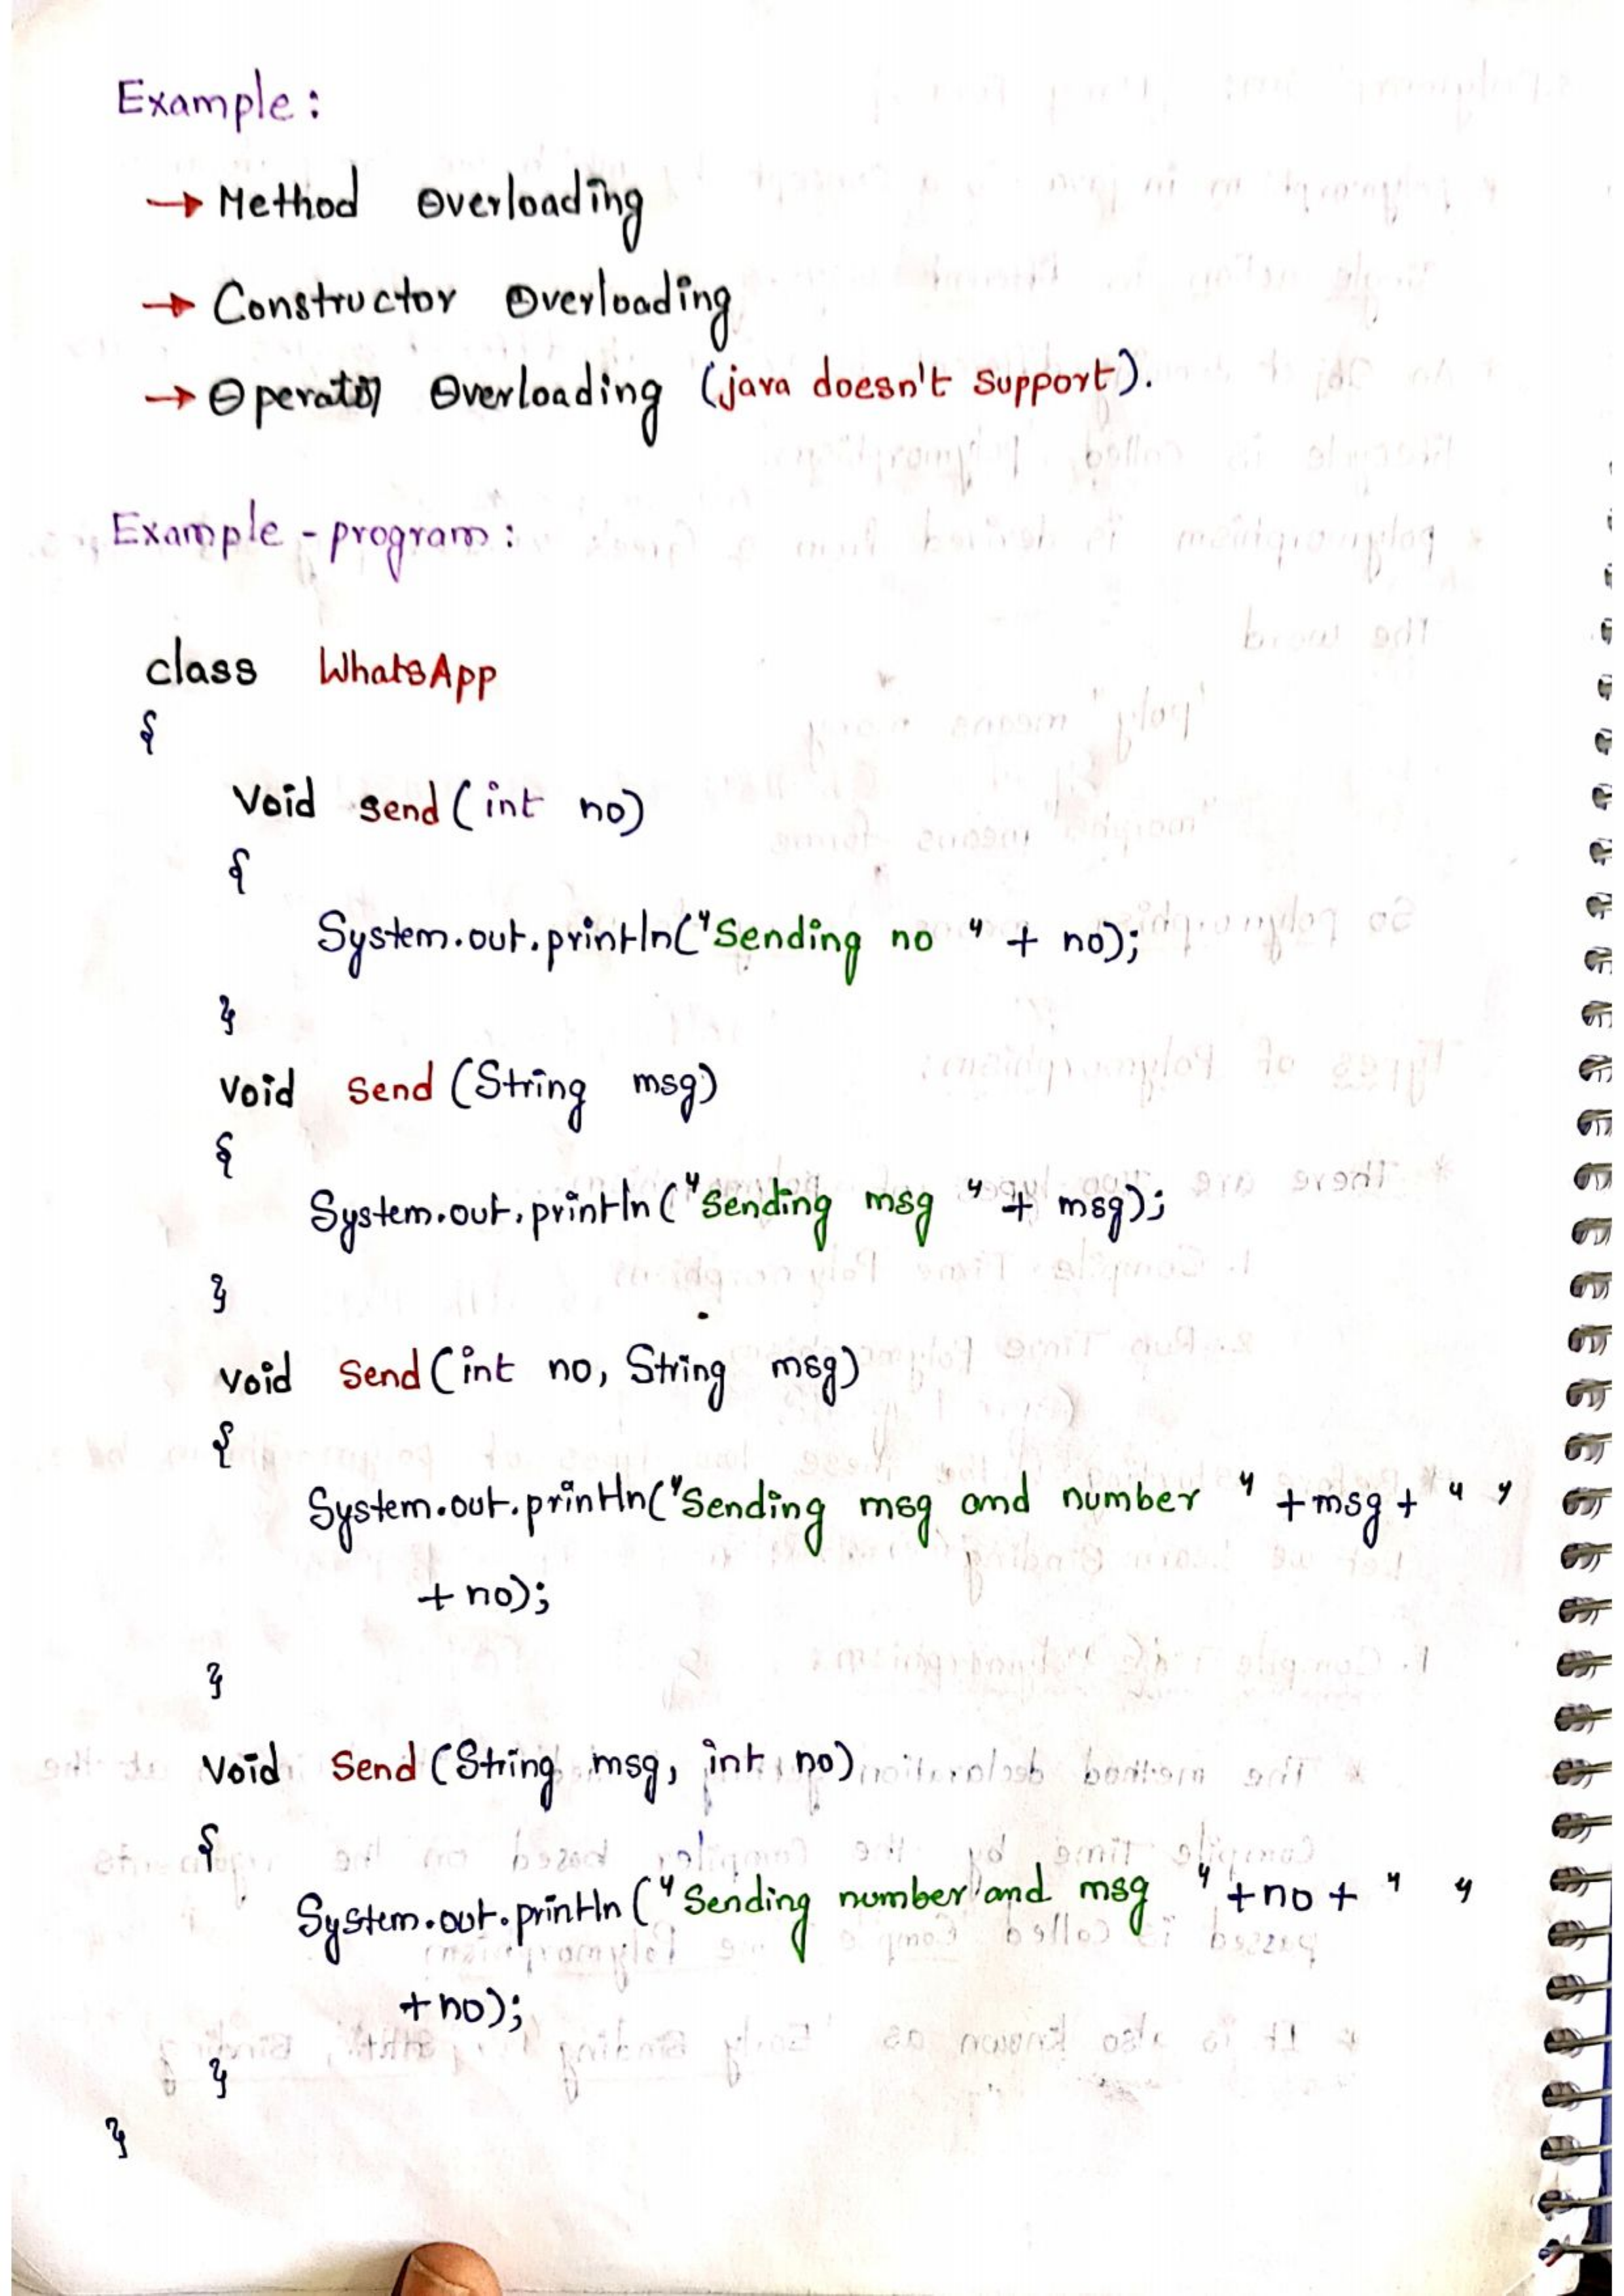 Example:
→ Method Overloading
→ Constructor Overloading
→ Operator Overloading (java doesn't support).
Example - program:
class WhatsApp
{
void send (int no)
{
System.out.println("Sending no " + no);
}
void send (String msg)
{
System.out.println("Sending msg " + msg);
}
void send (int no, String msg)
{
System.out.println("Sending msg and number " +msg+ " "
+ no);
}
void send (String msg, int no)
{
System.out.println("Sending number and msg " +no + " "
+no);
}
}